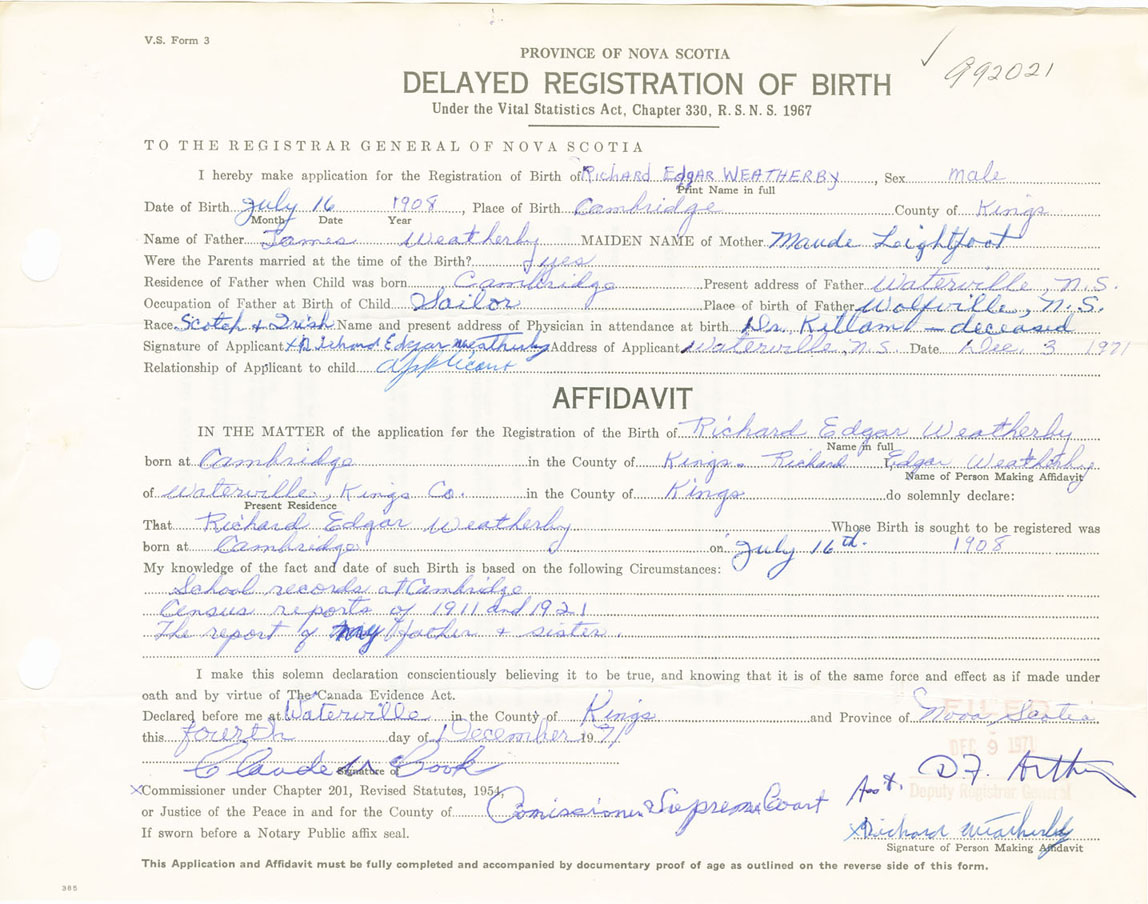 V.S. Form 3
PROVINCE OF NOVA SCOTIA
✓ 992021
DELAYED REGISTRATION OF BIRTH
Under the Vital Statistics Act, Chapter 330, R. S. N. S. 1967
TO THE REGISTRAR GENERAL OF NOVA SCOTIA
I hereby make application for the Registration of Birth of Richard Edgar WEATHERBY, Sex male
Print Name in full
Date of Birth July 16 1908, Place of Birth Cambridge County of Kings
Month Date Year
Name of Father James Weatherby MAIDEN NAME of Mother Maude Leightfoot
Were the Parents married at the time of the Birth? yes
Residence of Father when Child was born Cambridge Present address of Father Waterville, N.S.
Occupation of Father at Birth of Child Sailor Place of birth of Father Wolfville, N.S.
Race Scotch & Irish Name and present address of Physician in attendance at birth Dr. Killam — deceased
Signature of Applicant x Richard Edgar Weatherby Address of Applicant Waterville, N.S. Date Dec. 3 1971
Relationship of Applicant to child applicant
AFFIDAVIT
IN THE MATTER of the application for the Registration of the Birth of Richard Edgar Weatherby
Name in full
born at Cambridge in the County of Kings. Richard Edgar Weatherby
Name of Person Making Affidavit
of Waterville, Kings Co. in the County of Kings do solemnly declare:
Present Residence
That Richard Edgar Weatherby Whose Birth is sought to be registered was
born at Cambridge on July 16th. 1908
My knowledge of the fact and date of such Birth is based on the following Circumstances:
School records at Cambridge
Census reports of 1911 and 1921
The report of my father & sister.
I make this solemn declaration conscientiously believing it to be true, and knowing that it is of the same force and effect as if made under
oath and by virtue of The Canada Evidence Act.
Declared before me at Waterville in the County of Kings and Province of Nova Scotia
FILED
this fourth day of December 1971
DEC 9 1971
Claude Book
Signature of
Asst. D.F. Arthur
Deputy Registrar General
x Commissioner under Chapter 201, Revised Statutes, 1954,
or Justice of the Peace in and for the County of Comissioner Supreme Court
If sworn before a Notary Public affix seal.
x Richard Weatherby
Signature of Person Making Affidavit
This Application and Affidavit must be fully completed and accompanied by documentary proof of age as outlined on the reverse side of this form.
385